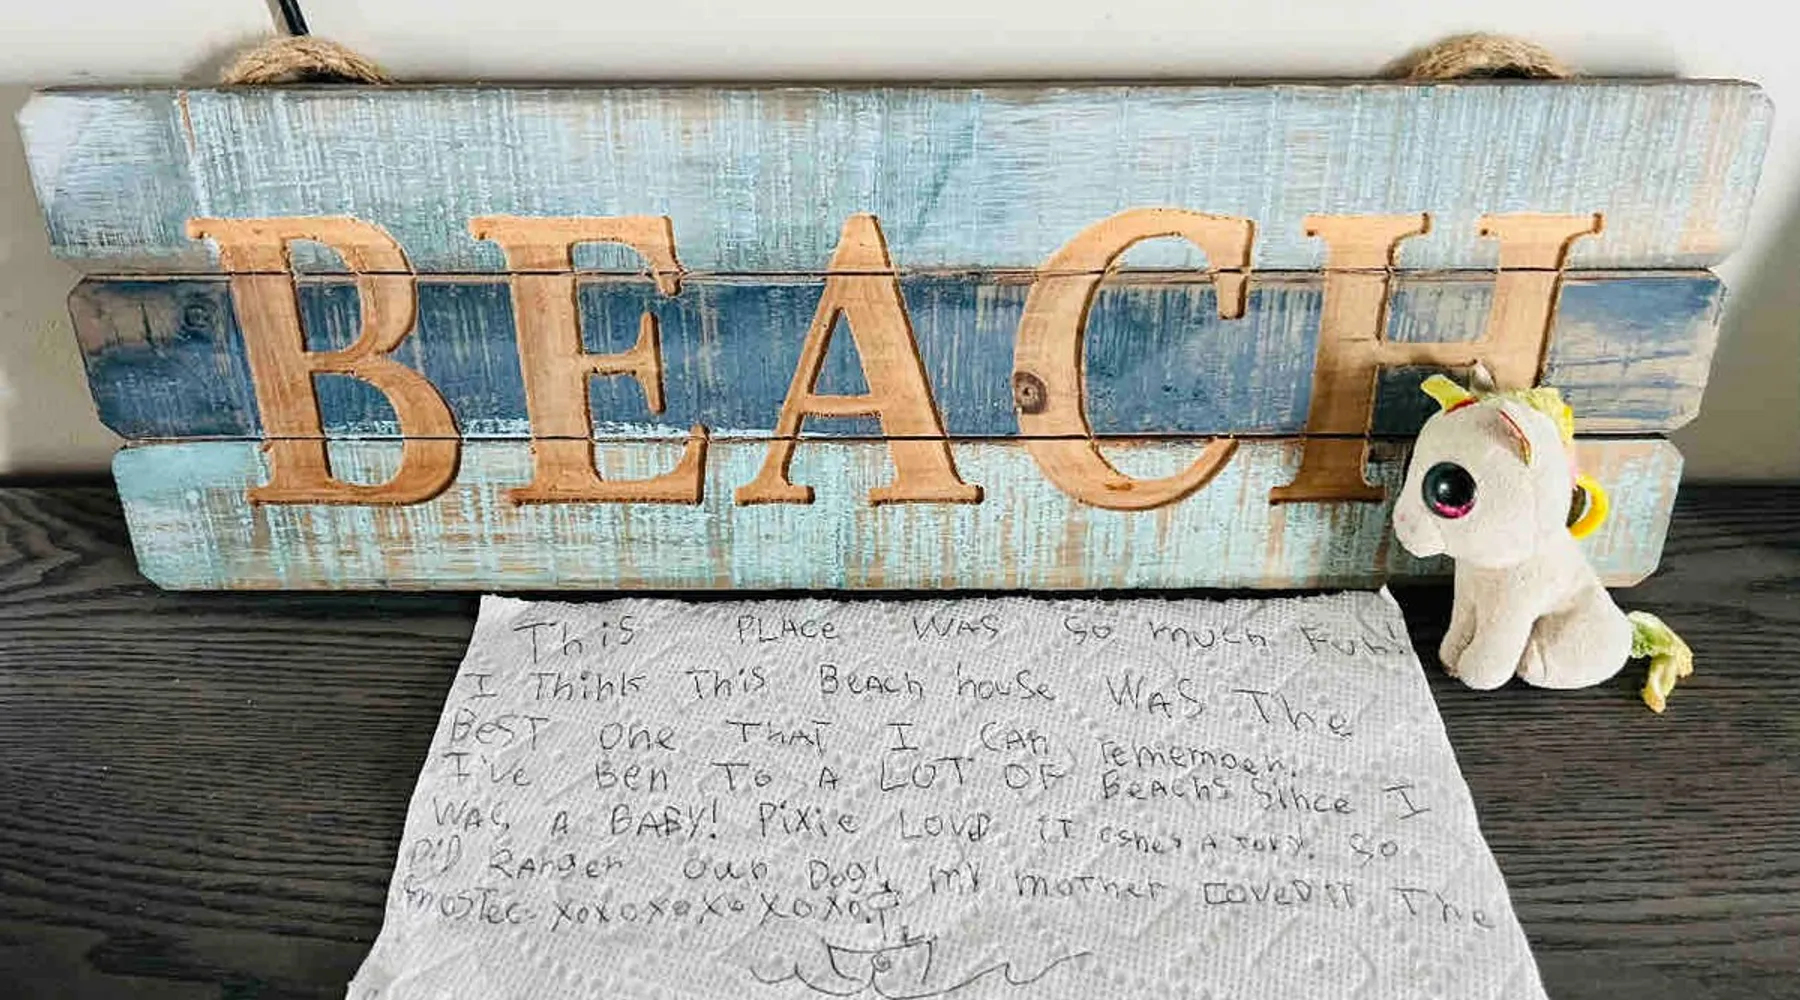 BEACH
This PLACe WAS so much Fun!
I Think This BeAch house WAS The
BeST one THAT I CAn rememoer.
I've Ben To A LOT OF BeAchs Since I
WAS A BABY! PiXie LOVD iT (shes A Toy). So
DiD RAnger our Dog! my moTher LoveD iT The
mosTee. XoXoXoXoXoXo